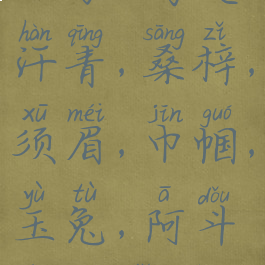 hàn qīng sāng zǐ
汗青，桑梓，
xū méi jīn guó
须眉，巾帼，
yù tù ā dǒu
玉兔，阿斗